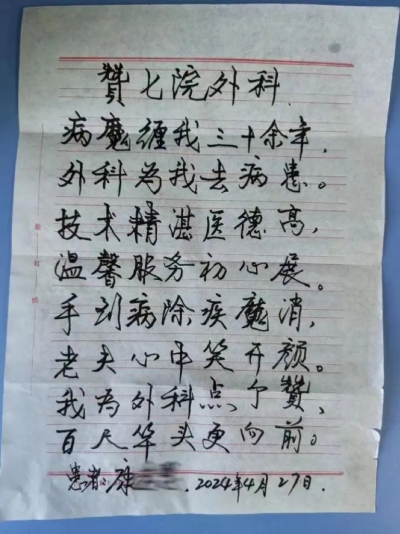 赞七院外科
病魔缠我三十余年,
外科为我去病患。
技术精湛医德高,
温馨服务初心展。
手到病除疾魔消,
老夫心中笑开颜。
我为外科点个赞,
百尺竿头更向前。
患者:康 2024年4月27日.